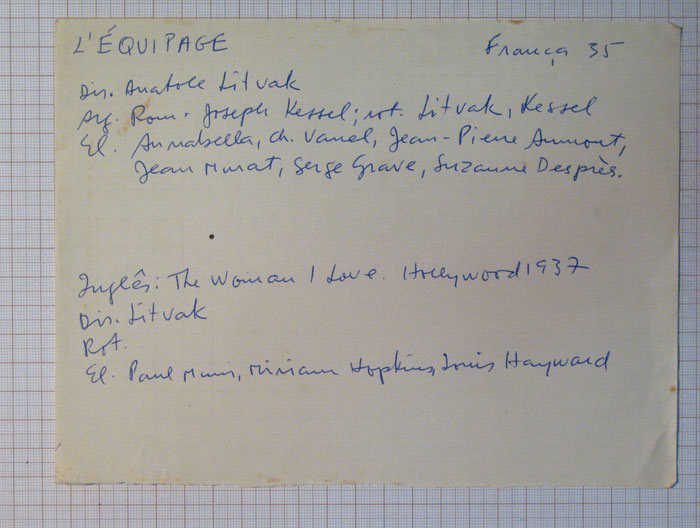 L'ÉQUIPAGE França 35
Dir. Anatole Litvak
Arg. Rom. Joseph Kessel; rot. Litvak, Kessel
El. Annabella, Ch. Vanel, Jean-Pierre Aumont,
Jean Murat, Serge Grave, Suzanne Desprès.
Inglês: The Woman I Love. Hollywood 1937
Dir. Litvak
Rot.
El. Paul Muni, Miriam Hopkins, Louis Hayward